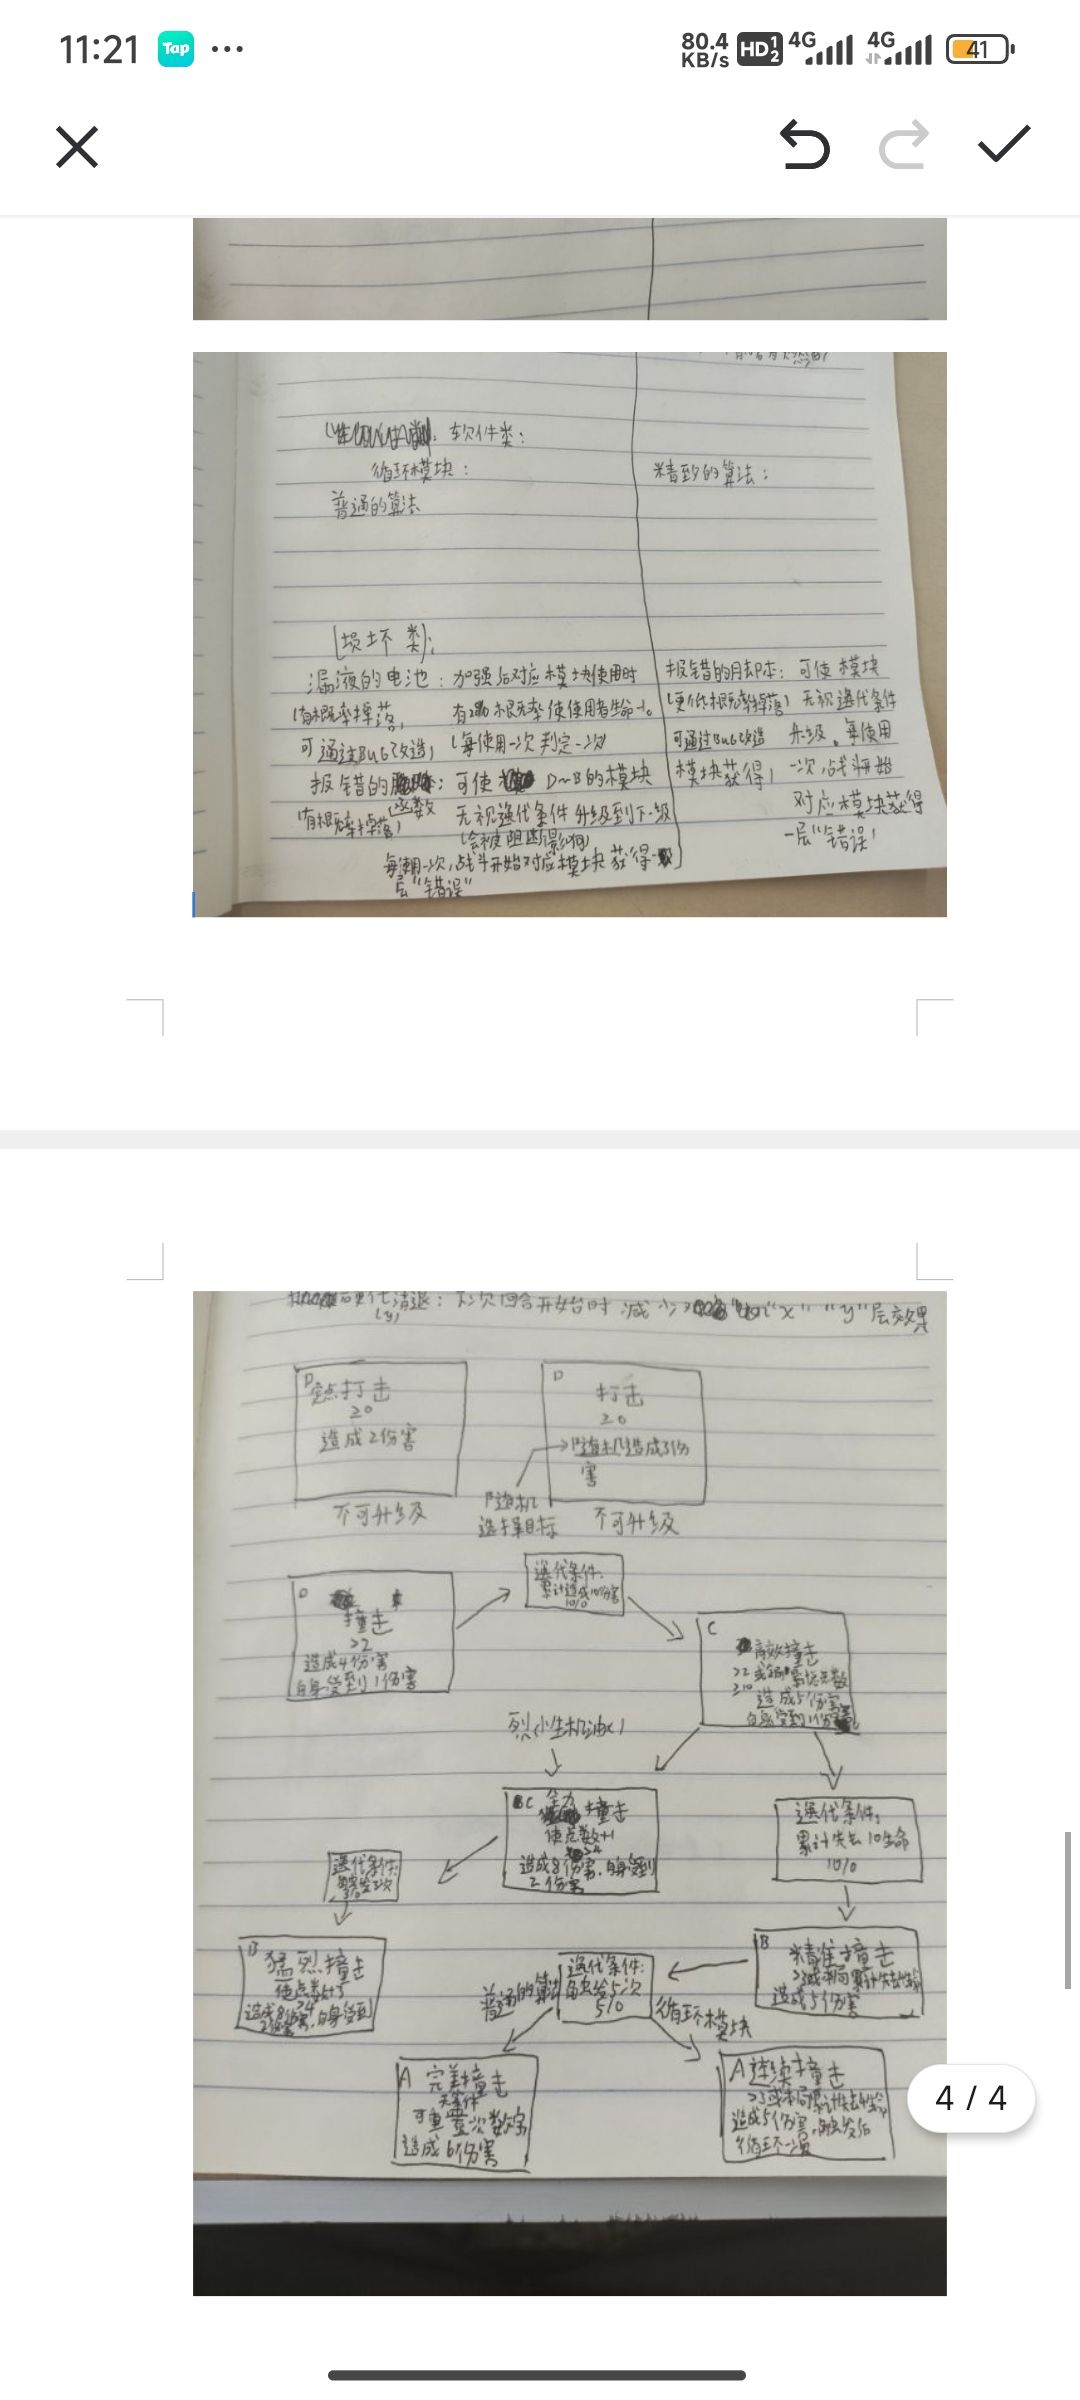 11:21
Tap
80.4
KB/s
HD 1 2
4G
4G
41
软件类:
循环模块:
精致的算法:
普通的算法
[损坏类]:
漏液的电池: 加强后对应模块使用时
(有概率掉落, 有 概率使使用者生命-1。
可通过BuG改造) (每使用一次判定一次)
报错的 函数: 可使 D~B的模块
(有概率掉落) 无视迭代条件升级到下一级
(会被阻断影响)
每使用一次,战斗开始对应模块获得一
层"错误"
报错的 : 可使模块
(更低概率掉落) 无视迭代条件
可通过BuG改造 升级。每使用
模块获得) 一次,战斗开始
对应模块获得
一层"错误"
清退: 每次回合开始时 减少 "x" "y"层效果
(y)
D
定点打击
≥0
造成2伤害
不可升级
D
打击
≥0
随机造成3伤
害
随机
选择目标
不可升级
迭代条件:
累计造成10伤害
10/0
D
撞击
>2
造成4伤害
自身受到1伤害
C
高效撞击
造成5伤害
自身受到1伤害
烈性机油( )
C 全力
撞击
使点数+1
造成8伤害,自身受到
2伤害
迭代条件:
累计失去10生命
10/0
迭代条件:
B
猛烈撞击
造成8伤害,自身受到
2伤害
普通的算法
迭代条件:
触发5次
5/0
循环模块
B
精准撞击
造成5伤害
A 完美撞击
无条件
可重置 次数字
造成6伤害
A 连续撞击
造成5伤害,触发后
循环一次
4 / 4